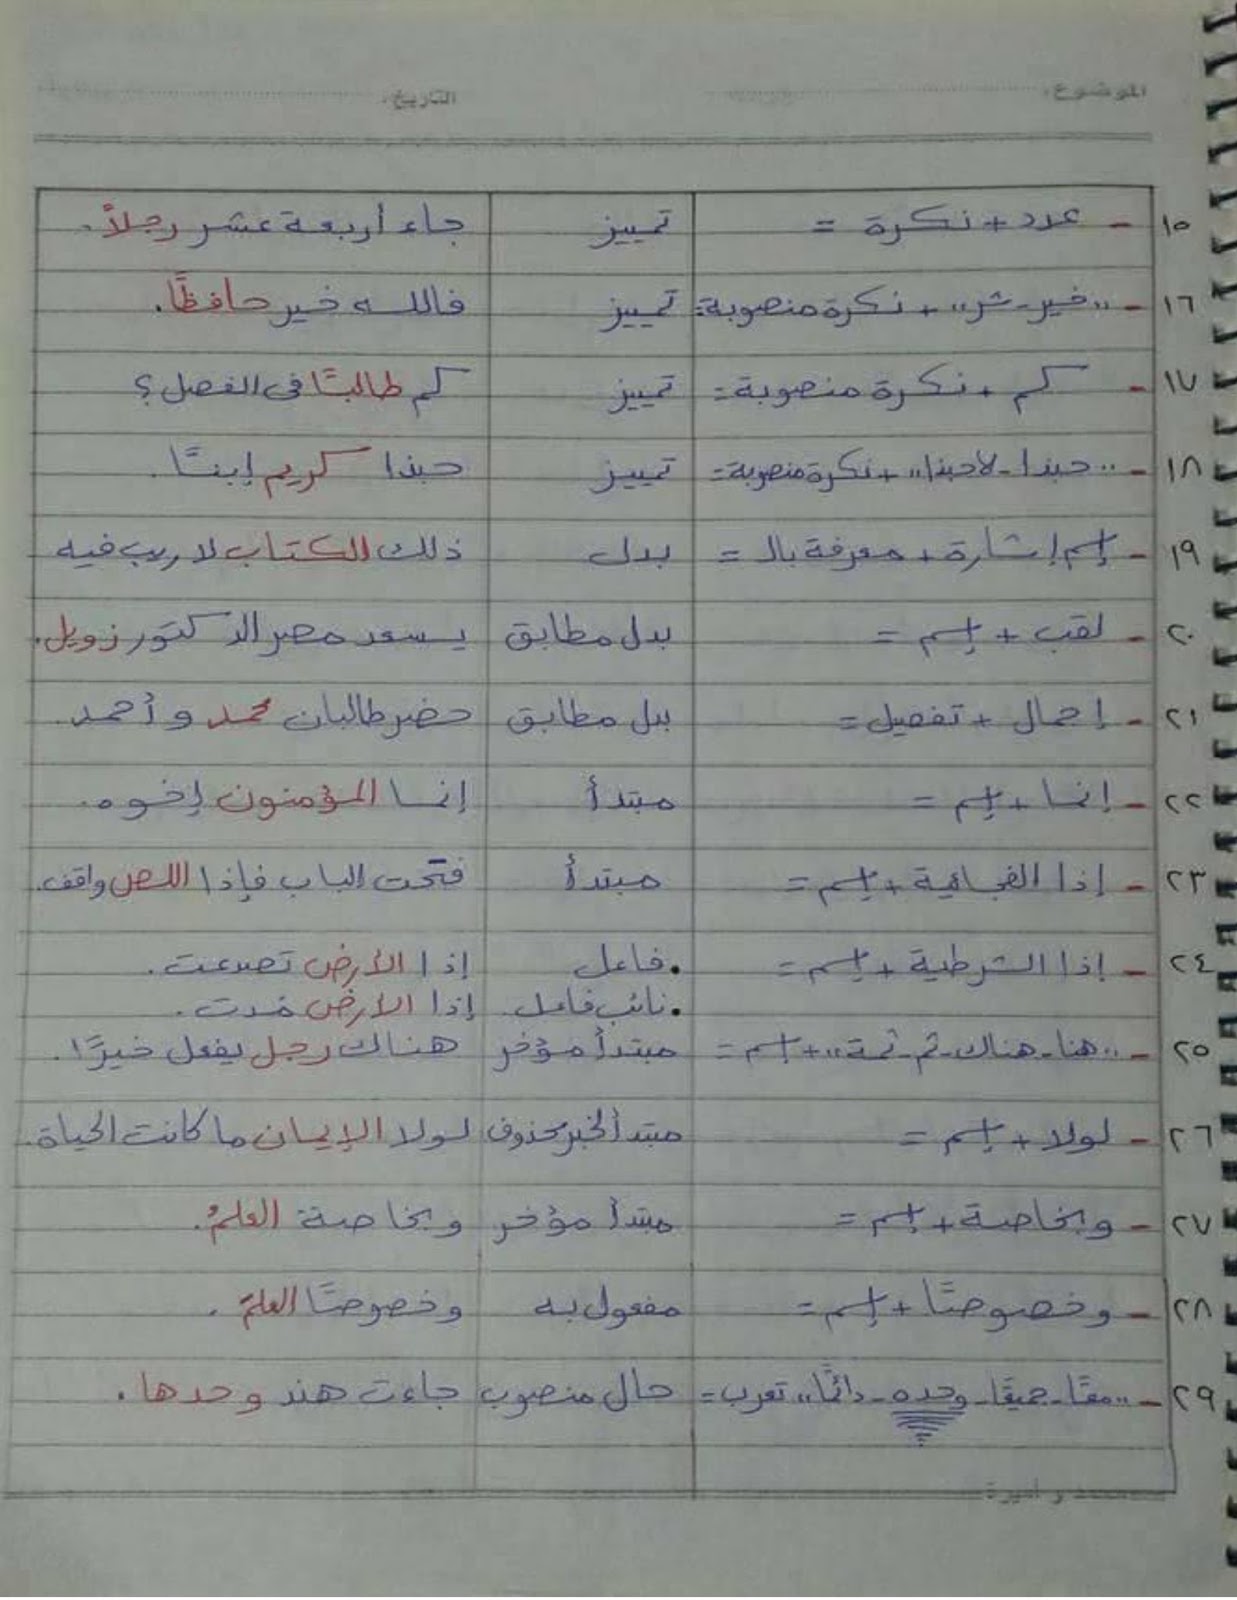 الموضوع: التاريخ:
١٥ - عدد + نكرة = تمييز جاء أربعة عشر رجلاً.
١٦ - "خير - شر" + نكرة منصوبة = تمييز فالله خير حافظًا.
١٧ - كم + نكرة منصوبة = تمييز كم طالبًا فى الفصل؟
١٨ - "حبذا - لا حبذا" + نكرة منصوبة = تمييز حبذا كريم إبنًا.
١٩ - إسم إشارة + معرفة بال = بدل ذلك الكتاب لا ريب فيه
٢٠ - لقب + إسم = بدل مطابق يسعد مصر الدكتور زويل.
٢١ - إجمال + تفصيل = بدل مطابق حضر طالبان محمد و أحمد.
٢٢ - إنما + إسم = مبتدأ إنما المؤمنون إخوه.
٢٣ - إذا الفجائية + إسم = مبتدأ فتحت الباب فإذا اللص واقف.
٢٤ - إذا الشرطية + إسم = • فاعل إذا الأرض تصدعت.
• نائب فاعل إذا الأرض مُدت.
٢٥ - "هنا - هناك - ثم - ثمة" + إسم = مبتدأ مؤخر هناك رجل يفعل خيرًا.
٢٦ - لولا + إسم = مبتدأ الخبر محذوف لولا الإيمان ما كانت الحياة.
٢٧ - وبخاصة + إسم = مبتدأ مؤخر وبخاصة العلمُ.
٢٨ - وخصوصًا + إسم = مفعول به وخصوصًا العلمَ.
٢٩ - "معًا - جميعًا - وحده - دائمًا" تعرب = حال منصوب جاءت هند وحدها.